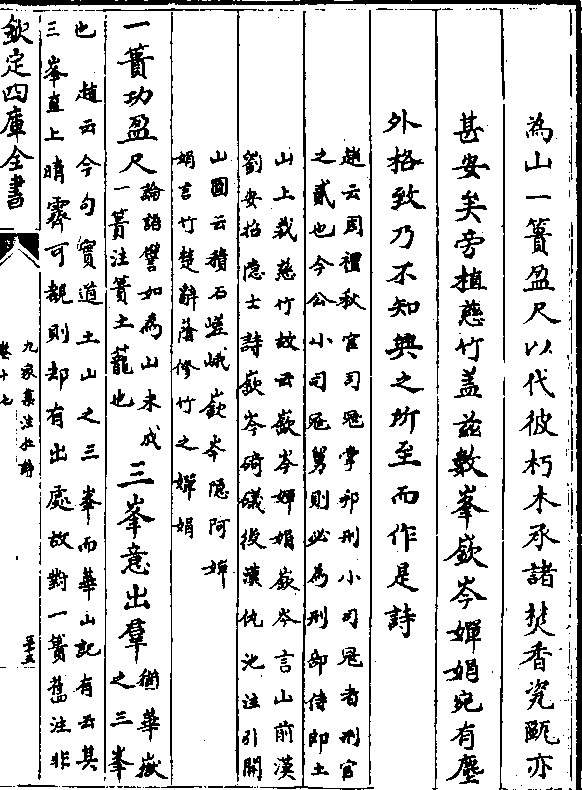 為山一簣盈尺以代彼朽木承諸焚香瓷甌亦
甚安矣旁植慈竹盖兹數峯嶔岑嬋娟宛有塵
外格致乃不知興之所至而作是詩
趙云周禮秋官司冦掌邦刑小司冦者刑官
之貳也今公小司冦舅則必為刑部侍郎土
山上栽慈竹故云嶔岑嬋娟嶔岑言山前漢
劉安招隠士詩嶔岑碕礒後漢仇池注引開
山圖云積石嵯峨嶔岑隠阿嬋
娟言竹楚辭蔭修竹之嬋娟
一簣功盈尺
論語譬如為山未成
一簣注簣土蘢也
三峯意出羣
猶華嶽
之三峯
也 趙云今句實道土山之三峯而華山記有云其
三峯直上晴霽可覩則却有出處故對一簣舊注非
欽定四庫全書
九家集注杜詩
卷十七